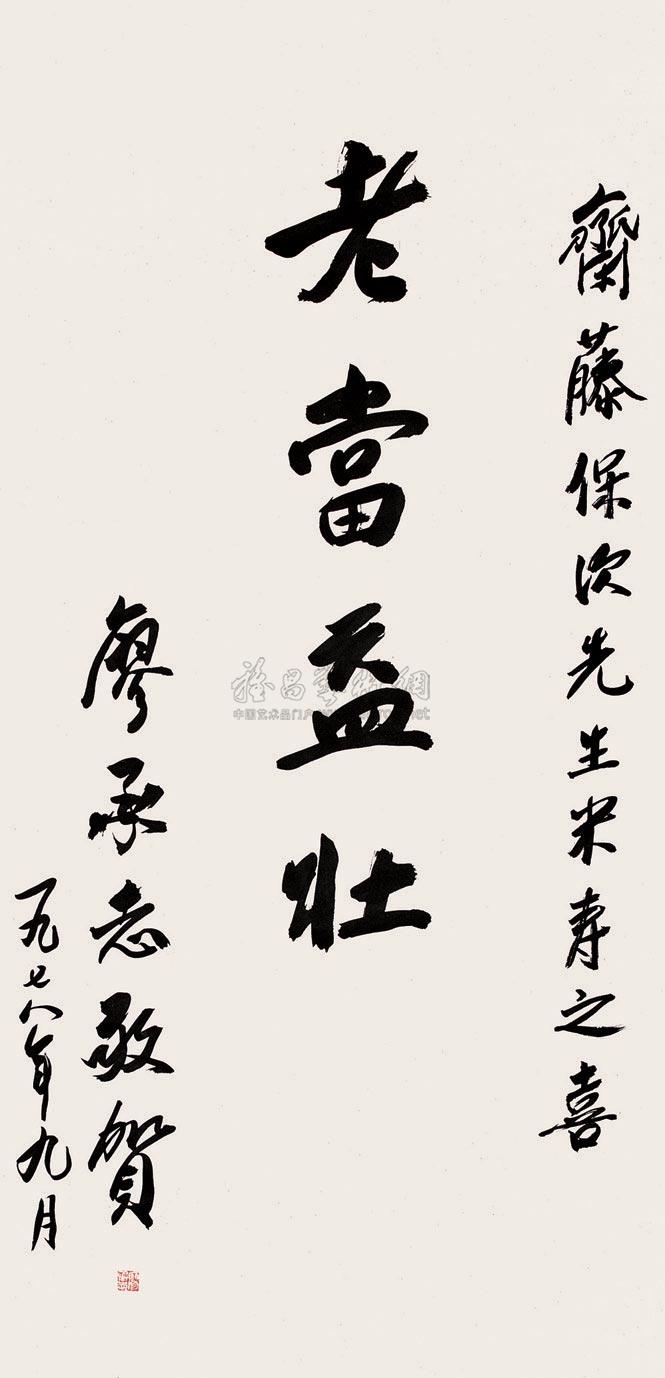 齋藤保次先生米寿之喜
老當益壯
廖承志敬賀
一九七八年九月
中国艺术品门户